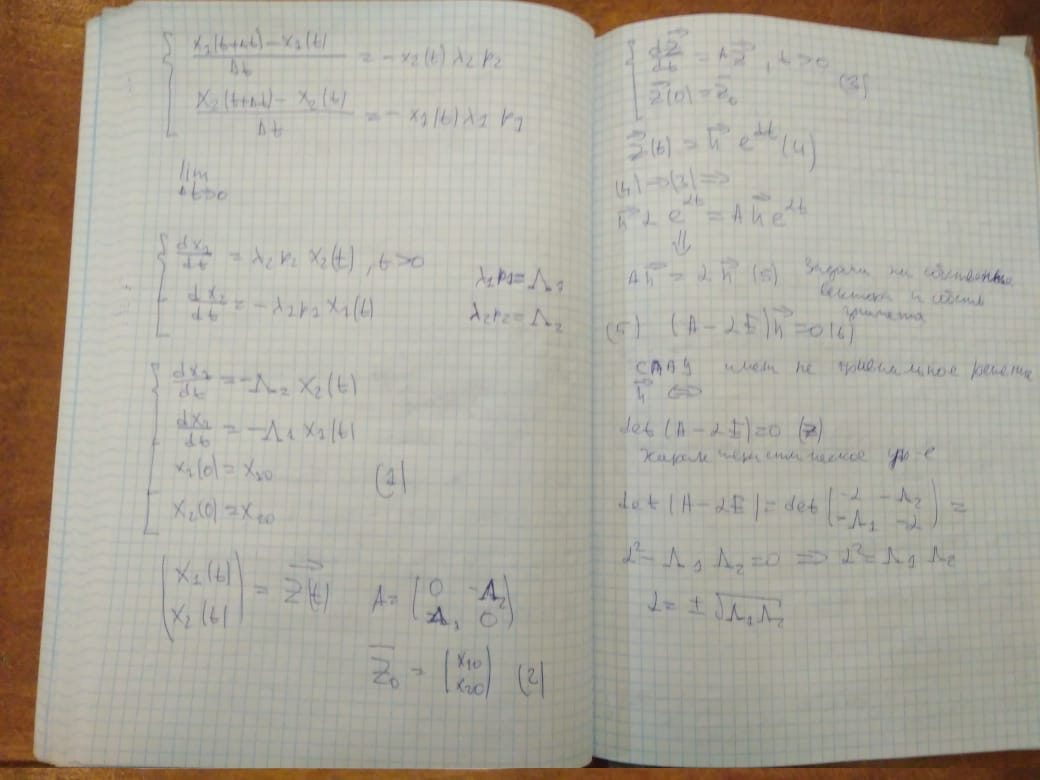 x₁(t+Δt) - x₁(t) / Δt = - x₂(t) λ₂ p₂
x₂(t+Δt) - x₂(t) / Δt = - x₁(t) λ₁ p₁
lim
Δt→0
dx₁/dt = λ₂ p₂ x₂(t), t>0
dx₂/dt = - λ₁ p₁ x₁(t)
λ₁p₁ = Λ₁
λ₂p₂ = Λ₂
dx₁/dt = -Λ₂ x₂(t)
dx₂/dt = -Λ₁ x₁(t)
x₁(0) = x₁₀
(1)
x₂(0) = x₂₀
(x₁(t) x₂(t)) = Z(t)
A = (0 -Λ₂ -Λ₁ 0)
Z₀ = (x₁₀ x₂₀) (2)
dZ/dt = AZ, t>0
Z(0) = Z₀
(3)
Z(t) = h e^λt (4)
(4) → (3) ⇒
h λ e^λt = A h e^λt
⇓
A h = λ h (5) Задача на собственные
вектора и собств
(5) (A - λE) h = 0 (6)
СЛАУ имеет не тривиальное решение
h ⇔
det (A - λE) = 0 (7)
Характеристическое ур-е
det (A - λE) = det (-λ -Λ₂ -Λ₁ -λ) =
λ² - Λ₁ Λ₂ = 0 ⇒ λ² = Λ₁ Λ₂
λ = ± √Λ₁Λ₂